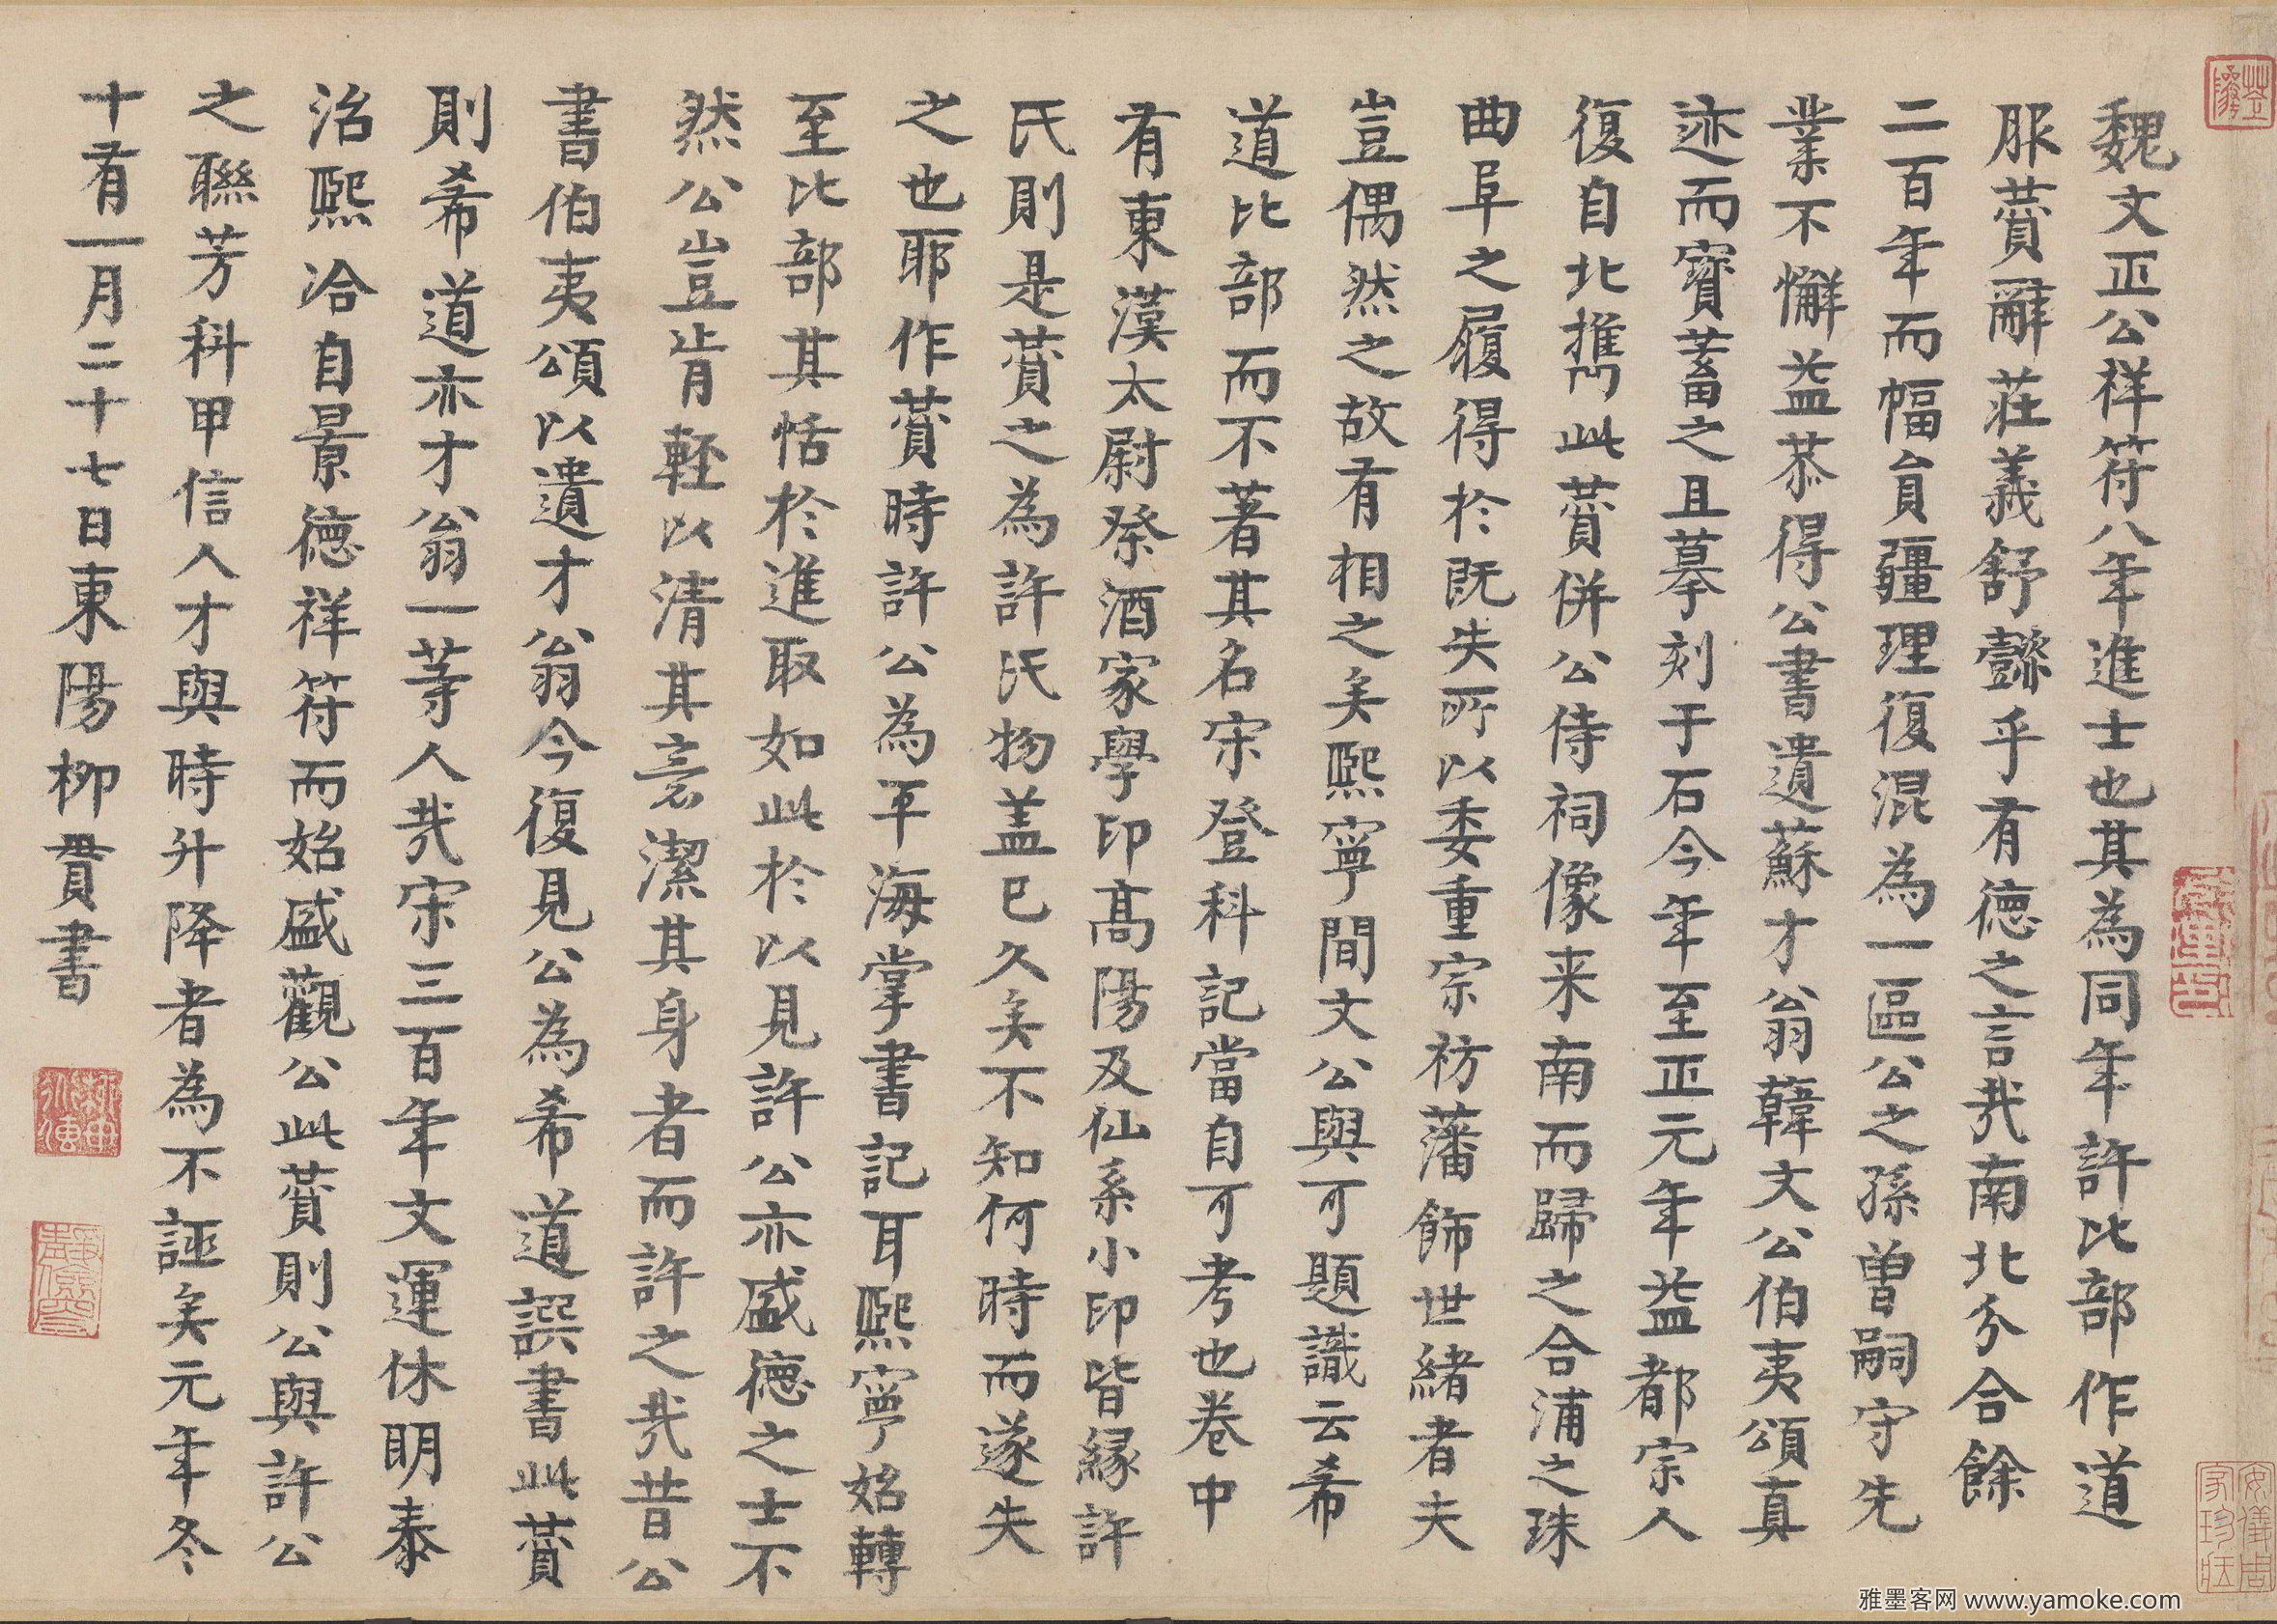 魏文正公祥符八年進士也其為同年許比部作道
服賛辭莊義舒懿乎有德之言㢤南北分合餘
二百年而幅員疆理復混為一區公之孫曾嗣守先
業不懈益恭得公書遺蘇才翁韓文公伯夷頌真
迹而寳蓄之且摹刻于石今年至正元年益都宗人
復自北携此賛併公侍祠像来南而歸之合浦之珠
曲阜之履得於既失所以委重宗祊藩飾世緒者夫
豈偶然之故有相之矣熙寧間文公與可題識云希
道比部而不著其名宋登科記當自可考也卷中
有東漢太尉祭酒家學印髙陽及仙系小印皆緣許
氏則是賛之為許氏物盖已久矣不知何時而遂失
之也耶作賛時許公為平海掌書記耳熙寧始轉
至比部其恬於進取如此於以見許公亦盛德之士不
然公豈肯輕以清其意潔其身者而許之㢤昔公
書伯夷頌以遺才翁今復見公為希道譔書此賛
則希道亦才翁一等人㢤宋三百年文運休明泰
治熙洽自景德祥符而始盛觀公此賛則公與許公
之聯芳科甲信人才與時升降者為不誣矣元年冬
十有一月二十七日東陽柳貫書
雅墨客网 www.yamoke.com